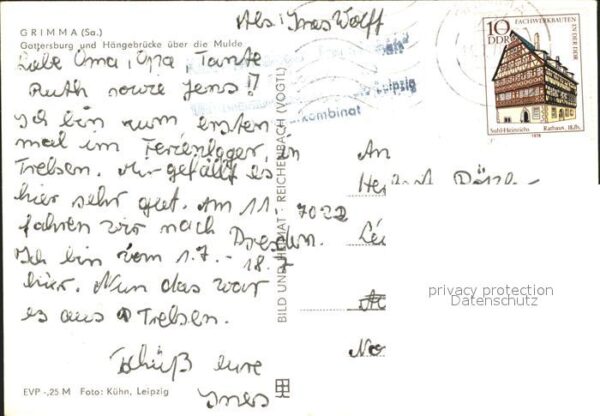 GRIMMA (Sa.)
Gattersburg und Hängebrücke über die Mulde
Abs: Ines Wolff
Liebe Oma, Opa, Tante
Ruth sowie Jens!!
Ich bin zum ersten
mal im Ferienlager in
Trebsen. Mir gefällt es
hier sehr gut. Am 11.
fahren wir nach Dresden.
Ich bin vom 1.7. - 18.7
hier. Nun das war
es aus Trebsen.
Tschüß eure
Ines
EVP -,25 M Foto: Kühn, Leipzig
BILD UND HEIMAT · REICHENBACH (VOGTL)
Leipzig
kombinat
10
DDR
FACHWERKBAUTEN
IN DER DDR
Suhl-Heinrichs Rathaus, 16. Jh.
1978
An
7022
privacy protection
Datenschutz